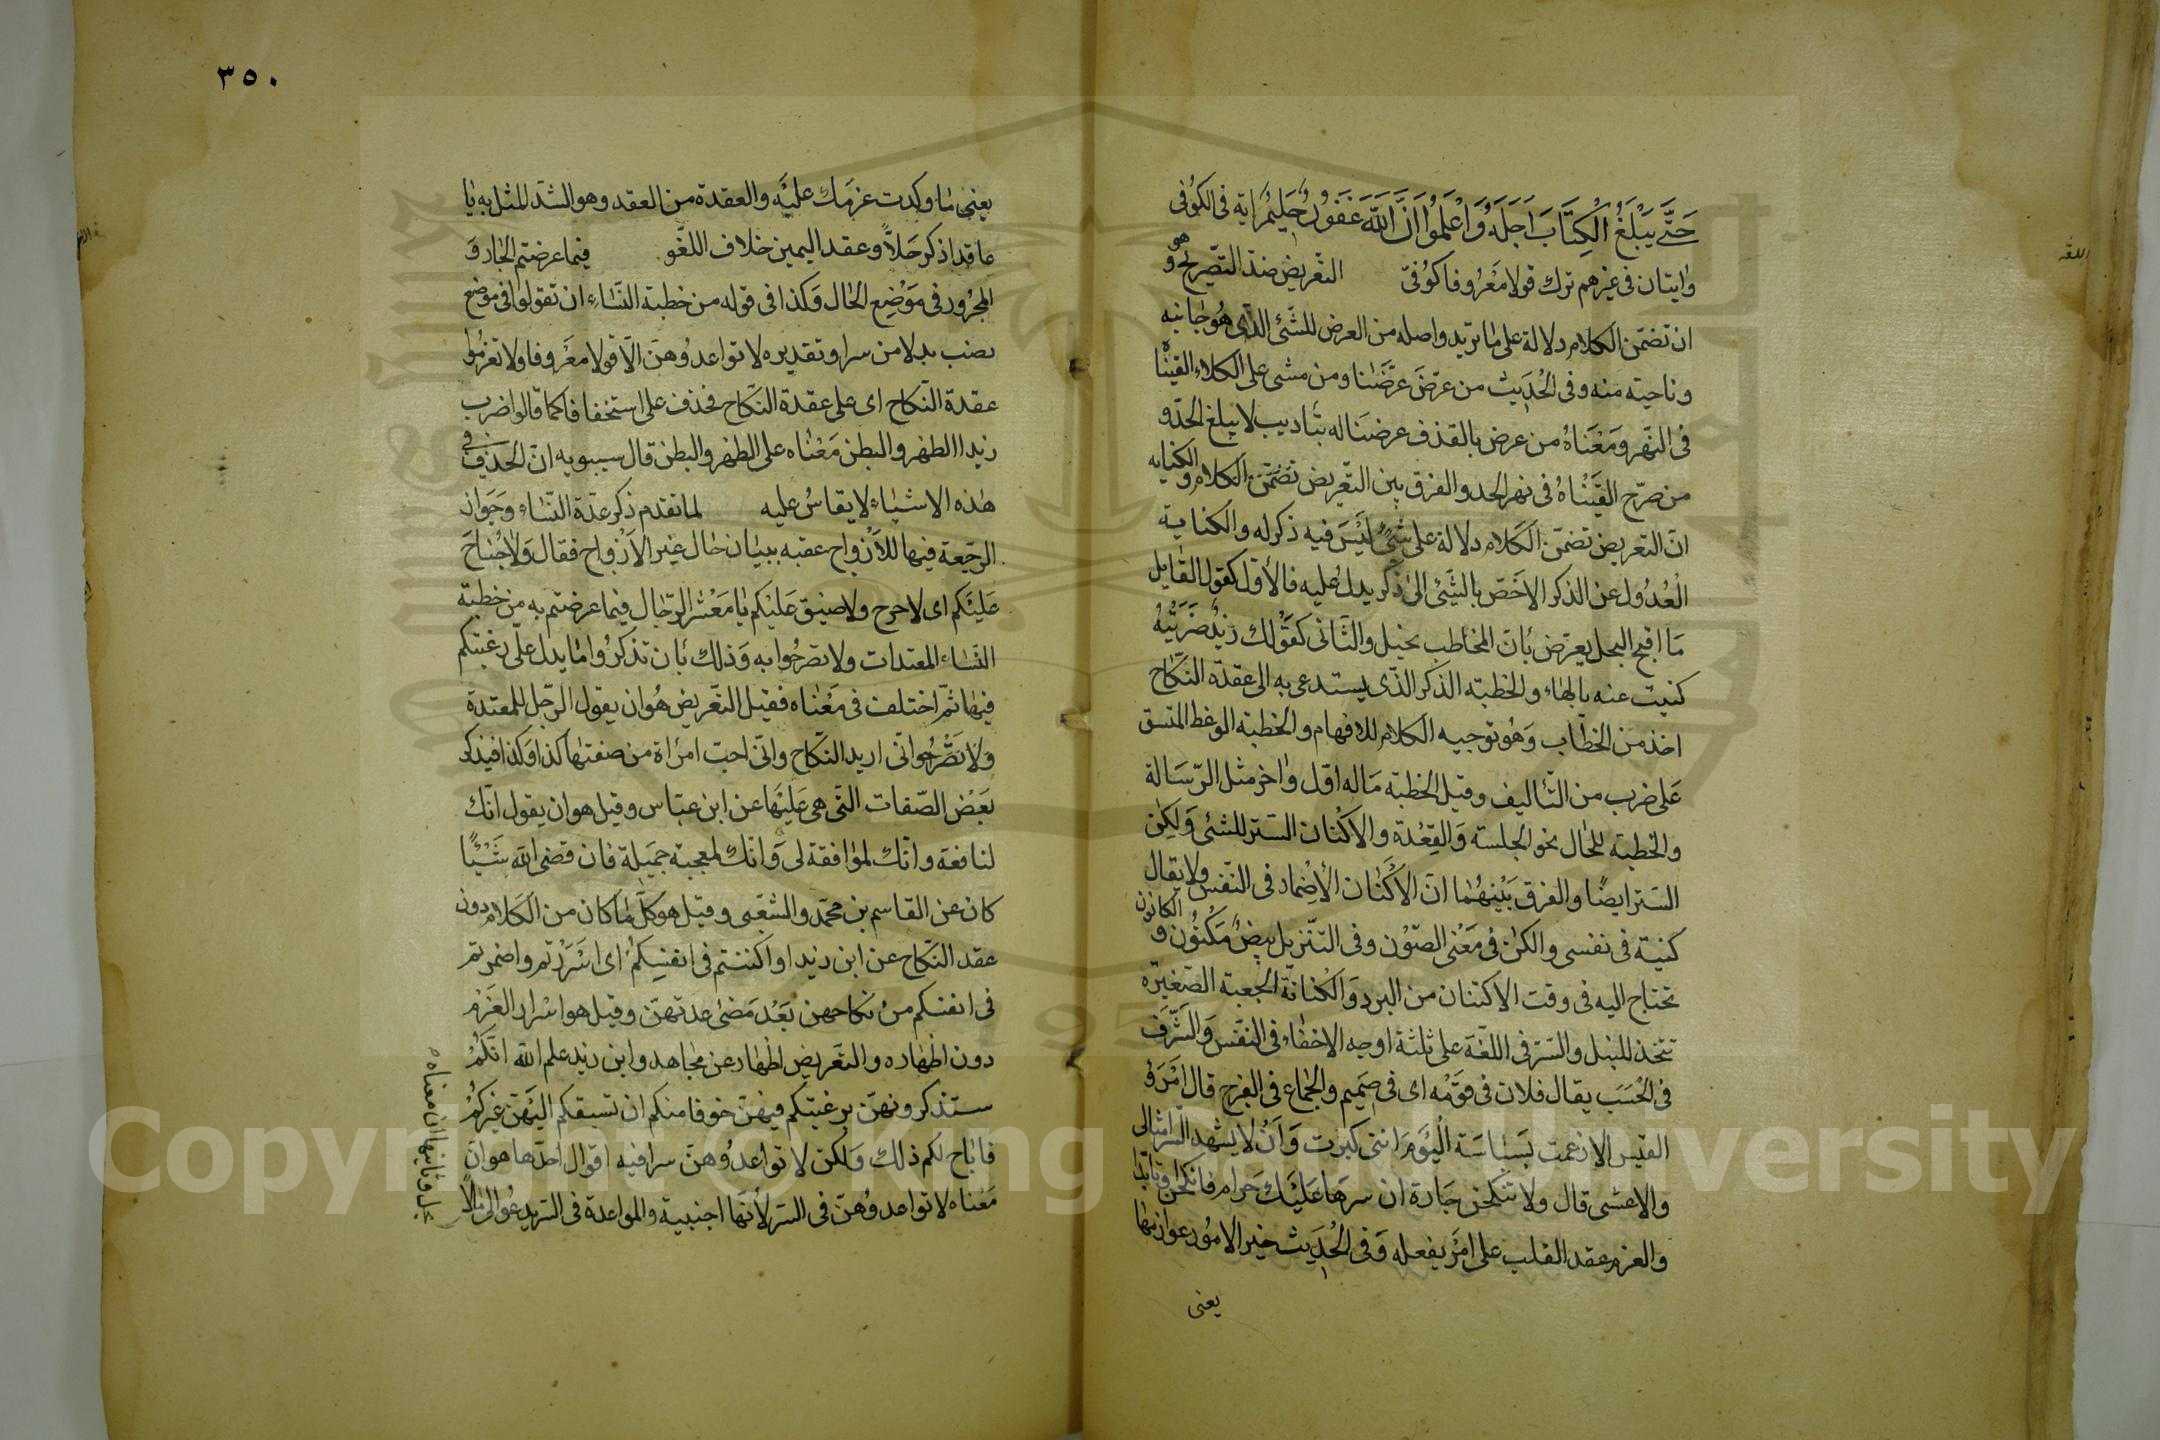 حَتَّى يَبْلُغَ الْكِتَابَ اَجَلَهُ وَاعْلَمُوا اَنَّ اللّهَ غَفُورٌ حَلِيمٌ اية فى الكوُفى
وايتان فى غيرهم ترك قولا معْرُوفا كوُفىّ التّعريض ضدّ التّصريح وهو
ان تضمّن الكلام دلالة على ما تريد واصله من العرض للشّئ الذى هُو جانبه
وناحيته منه وفى الحْدَيث من عرّض عرّضنا ومن مشى على الكلاء القيناه
فى النّهر ومَعْناهُ من عرض بالقذف عرضنا له بتأديب لا يبلغ الحدّ و
من صرّح القَينْاهُ فى نهر الحد والفرق بين التّعريض تضمّن الكلام والكناية
انّ التعريض تضمّن الكَلام دلالة على شئٍ ليْسَ فيه ذكر له والكناية
العُدُول عن الذكر الاخصّ بالشّئ الى ذكر يدل عليه فالأوّل كقول القايل
مَا اقبح البحل يعرّض بأنّ المخاطب بخيل والثّانى كقوْلك زيْدٌ ضَرَبْتُهُ
كنيت عنه بالهاء والخطبة الذكر الذّى يستدعى به الى عقدة النّكاح
اخذ من الخطاب وهُو توجيه الكلام للافهام والخطبة الوعظ المتسق
عَلى ضرب من التّأليف وقيل الخطبة مَا له اوّل واخر مثل الرّسَالة
والخطبة للحال نحو الجلسة والقِعْدة والاكْنان السّتر للشئ والكن
السّتر ايضًا والفرق بَيْنهُما انّ الاكْنان الأضْمار فى النّفس ولا يقال
كنيته فى نفسى والكن فى مَعْنى الصّوْن وفى التّنزيل بيضٌ مَكْنُون والكانون
تحتاج اليه فى وقت الاكتنان من البرد وَالكْنانة الجعبة الصّغيرة
تتخذ للنبل والسّر فى اللغة على ثلثة اوجه الاخفاء فى النّفس والشّرف
فى الحْسَب يقال فلان فى قوْمه اى فى صميم والجماع فى الفرج قال امْرَؤ
القيس الا زعمت بسْباسَة اليْوَم انّنى كبرت وَانْ لا يشهد السّر امثالى
والاعشى قال ولا تنكحن جَارة ان سرهَا عَليَك حَرام فانكحن او تابّدا
والعزم عقد القلب على امْر يفعله وَفى الحْدَيث خير الامُور عوازمها
يعنى
٣٥٠
يعنى مَا وكدت عزمَك عليَه والعقدة من العقد وهو الشدّ للمثل به يا
عاقد اذكر حَلاًّ وعقد اليمين خلاف اللغْو فيما عرضتم الجار وَ
المجرُور فى مَوْضِع الحال وكذا فى قوله من خطبة النّساء ان تقولوا فى موضع
نصب بدلا من سرا وتقديره لا تواعدُوهنّ الّا قولا معْرُوفا ولا تعزمُوا
عقدة النّكاح اى على عقدة النّكاح فحذف على استخفافا كما قالوا ضرب
زيد الظهر والبطن مَعْناه على الظهر والبطن قال سيبويه انّ الحَذف فى
هذه الاشياء لا يقاسُ عليه لما تقدم ذكر عدّة النّساء وجَواز
الرجّعة فيها للأزْواج عقبه ببيان حال غير الأزْواج فقال وَلا جُناحَ
عَليْكم اى لا حرج ولا ضيق عَليْكم يا مَعْشر الرّجال فيما عرضتم به من خطبة
النّساء المعتدات ولا تصرحُوا به وَذلك بأن تذكرُوا ما يدل على رغبتكم
فيها ثمّ اختلف فى مَعْناه فقيل التّعريض هُو ان يقول الرّجل للمعتدة
ولا تَصْرحُوا انى اريد النّكاح وانى احبّ امْراة من صفتها كذا وكذا فيذكر
بَعْض الصّفات التّى هى عَليْها عن ابن عبّاس وقيل هو ان يقول انّك
لنافعة وانّك لموافقة لى وَانّك لمعجبة جميلة فان قضى الله شيْئًا
كان عن القاسم بن محمّد والشّعبى وقيل هو كلّ ما كان من الكَلام دون
عقد النّكاح عن ابن زيد او اكننتم فى انفسِكُم اى اسْررْتم واضمرتم
فى انفسكم منْ نكاحهن بَعْد مَضىْ عدتهنّ وقيل هو اسْرار العَزم
دون اظهاره والتعريض اظهار عن مجاهد وابن زيد علم الله انّكمْ
ستذكرونهنّ برغبتكم فيهنّ خوفا منكم ان تسبقكم اليْهنّ غيركمْ
فاباح لكم ذلك ولكن لا تواعدُوهنّ سرا فيه اقوال احدّها هو انّ
مَعناه لا تواعدوُهنّ فى السّر لأنّها اجنبية والمواعدة فى السّر يدعُو الى ما لا
يحلّ وثانيها ان معناه
Copyright © King Saud University